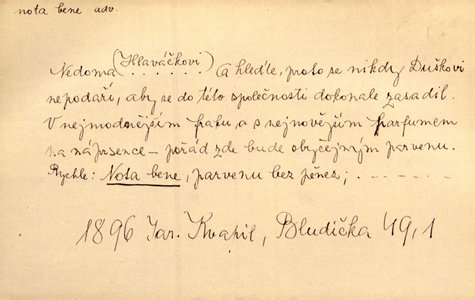 nota bene adv.
Nedoma (Hlaváčkovi) (A hleďte, proto se nikdy Duškovi
nepodaří, aby se do této společnosti dokonale zasadil.
V nejmodnějším fraku a s nejnovějším parfumem
na náprsence – pořád zde bude obyčejným parvenu.
Rychle: Nota bene, parvenu bez peněz; – . . . . . .
1896 Jar. Kvapil, Bludička 49, 1